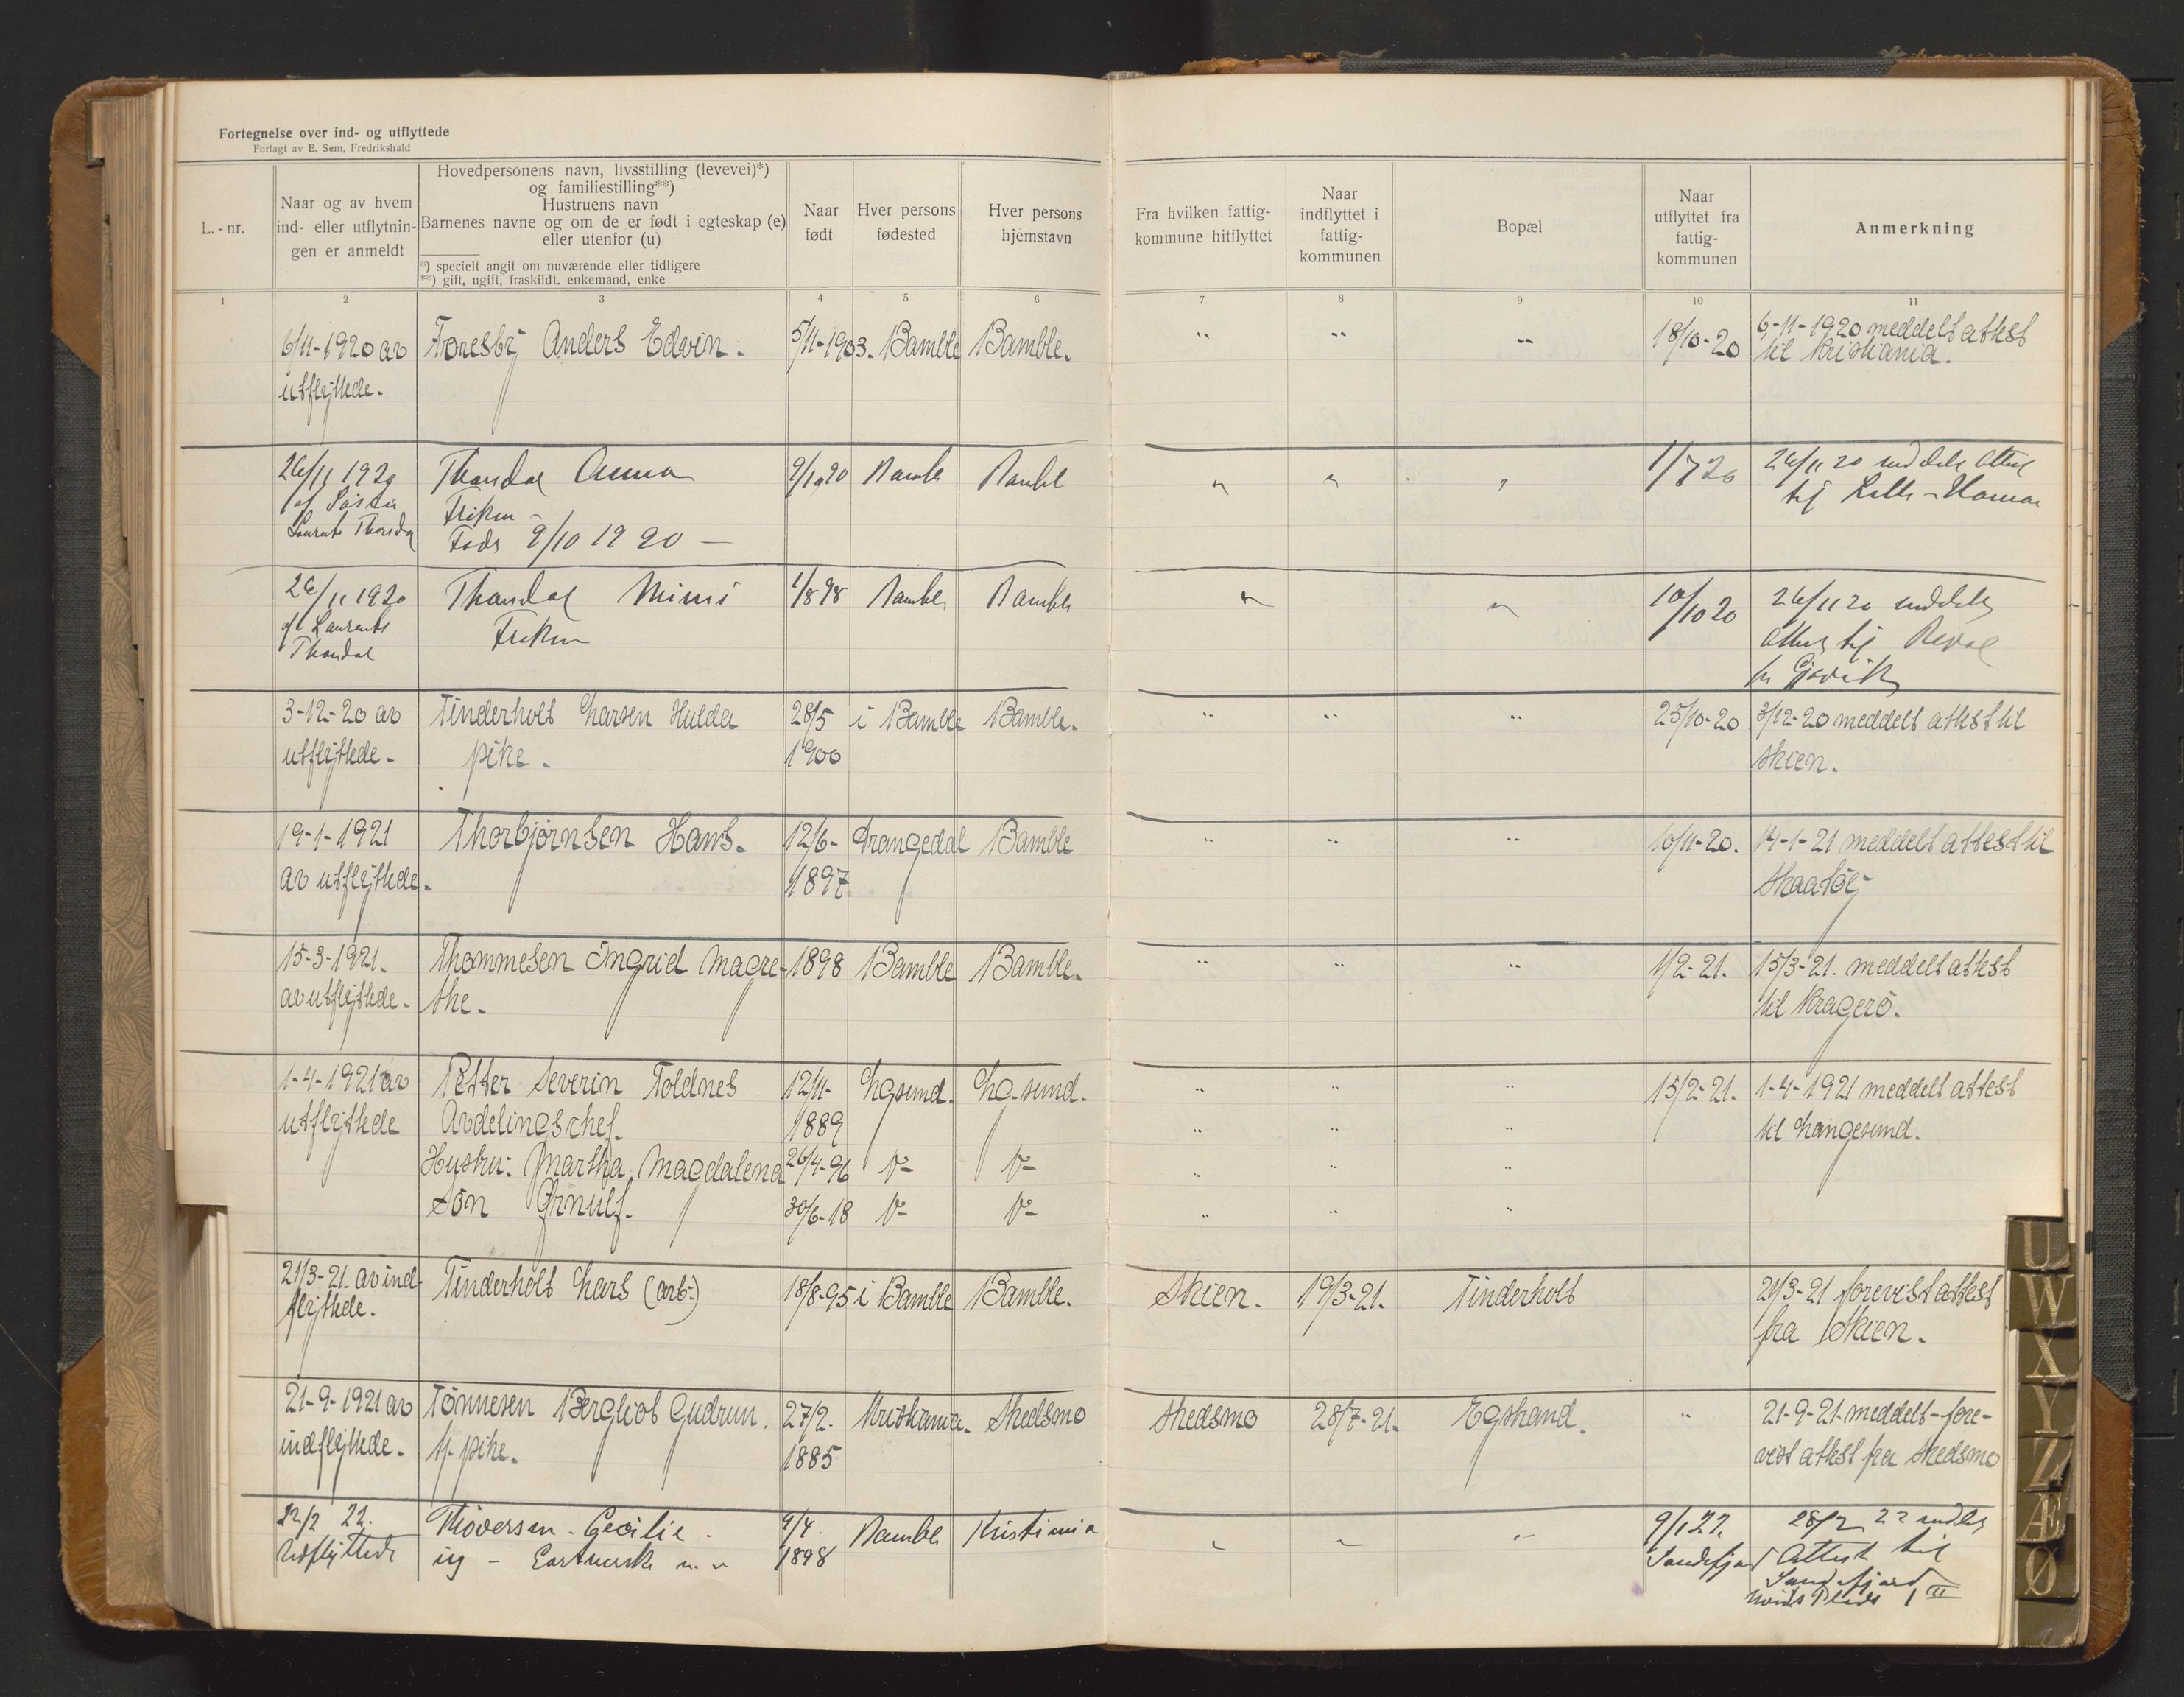 Fortegnelse over ind- og utflyttede
Forlagt av E. Sem, Fredrikshald
L.-nr.
Naar og av hvem ind- eller utflytnin- gen er anmeldt
Hovedpersonens navn, livsstilling (levevei)*)
og familiestilling**)
Hustruens navn
Barnenes navne og om de er født i egteskap (e)
eller utenfor (u)
*) specielt angit om nuværende eller tidligere
**) gift, ugift, fraskildt, enkemand, enke
Naar født
Hver persons fødested
Hver persons hjemstavn
Fra hvilken fattig- kommune hitflyttet
Naar indflyttet i fattig- kommunen
Bopæl
Naar utflyttet fra fattig- kommunen
Anmerkning
1 2 3 4 5 6 7 8 9 10 11
6/11-1920 av Toresby Anders Edvin. 5/11-1903. Bamble Bamble. " " " 18/10-20 6-11-1920 meddelt attest
utflyttede. til Kristiania.
26/11 1920 Thordal Anna Bamble Bamble " " " 1/7 20 26/11 20 meddelt attest
af Søster Frøken - til Lille-Hamar
Laurents Thordal Føds 9/10 1920 -
26/11 1920 Thordal Mimi 1/8 98 Bamble Bamble " " 10/10 20 26/11 20 meddelt
af Laurents Frøken attest til
Thordal Gjøvik
3-12-20 av Tinderholt Larsen Hulda 28/5 i Bamble Bamble. " " " 25/10-20 3/12-20 meddelt attest til
utflyttede. pike. 1900 Skien.
19-1-1921 Thorbjørnsen Hans. 12/6- Drangedal Bamble " " " 10/11-20. 14-1-21 meddelt attest til
av utflyttede. 1897 Skaatøy
15-3-1921. Thommesen Ingrid Magre- 1898 Bamble Bamble. " " " 1/2-21. 15/3-21. meddelt attest
av utflyttede. the. til Kragerö.
1-4-1921 av Petter Severin Toldnes 12/11- Lgsund. Lg.sund. " " " 15/2-21. 1-4-1921 meddelt attest
utflyttede Avdelingschef. 1889 " " " til Langesund.
Hustru: Martha Magdalena 26/4-96 " " "
Sön Ørnulf. 30/6-18 " " "
21/3-21. av ind- Tinderholt Lars (arb.) 18/8-95 i Bamble Bamble. Skien. 19/3-21. Tinderholt 21/3-21 forevist attest
flyttede. fra Skien.
21-9-1921 av Tönnesen Bergliot Gudrun. 27/2. Kristiania. Skedsmo Skedsmo 28/7-21. Egstrand. " 21-9-21. meddelt-fore-
indflyttede. tj. pike. 1885 vist attest fra Skedsmo
22/2 22. Cecilie. 9/4. Bamble Kristiania " " " 9/1 22. 28/2 22 meddelt
Udflyttede ug - 1898 Sandefjord Attest til
Sandefjord